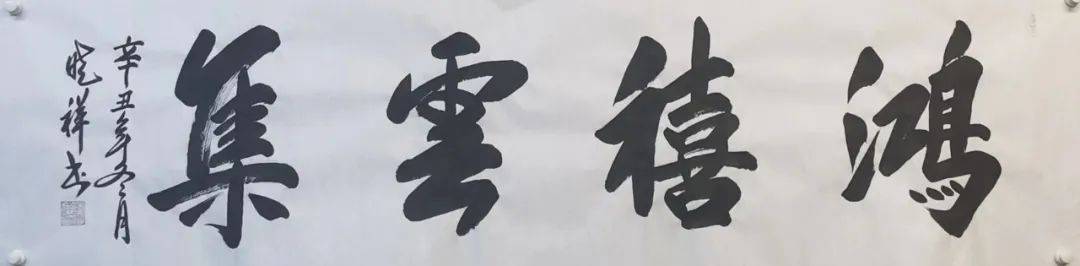 鴻禧雲集
辛丑年冬月
晓祥书